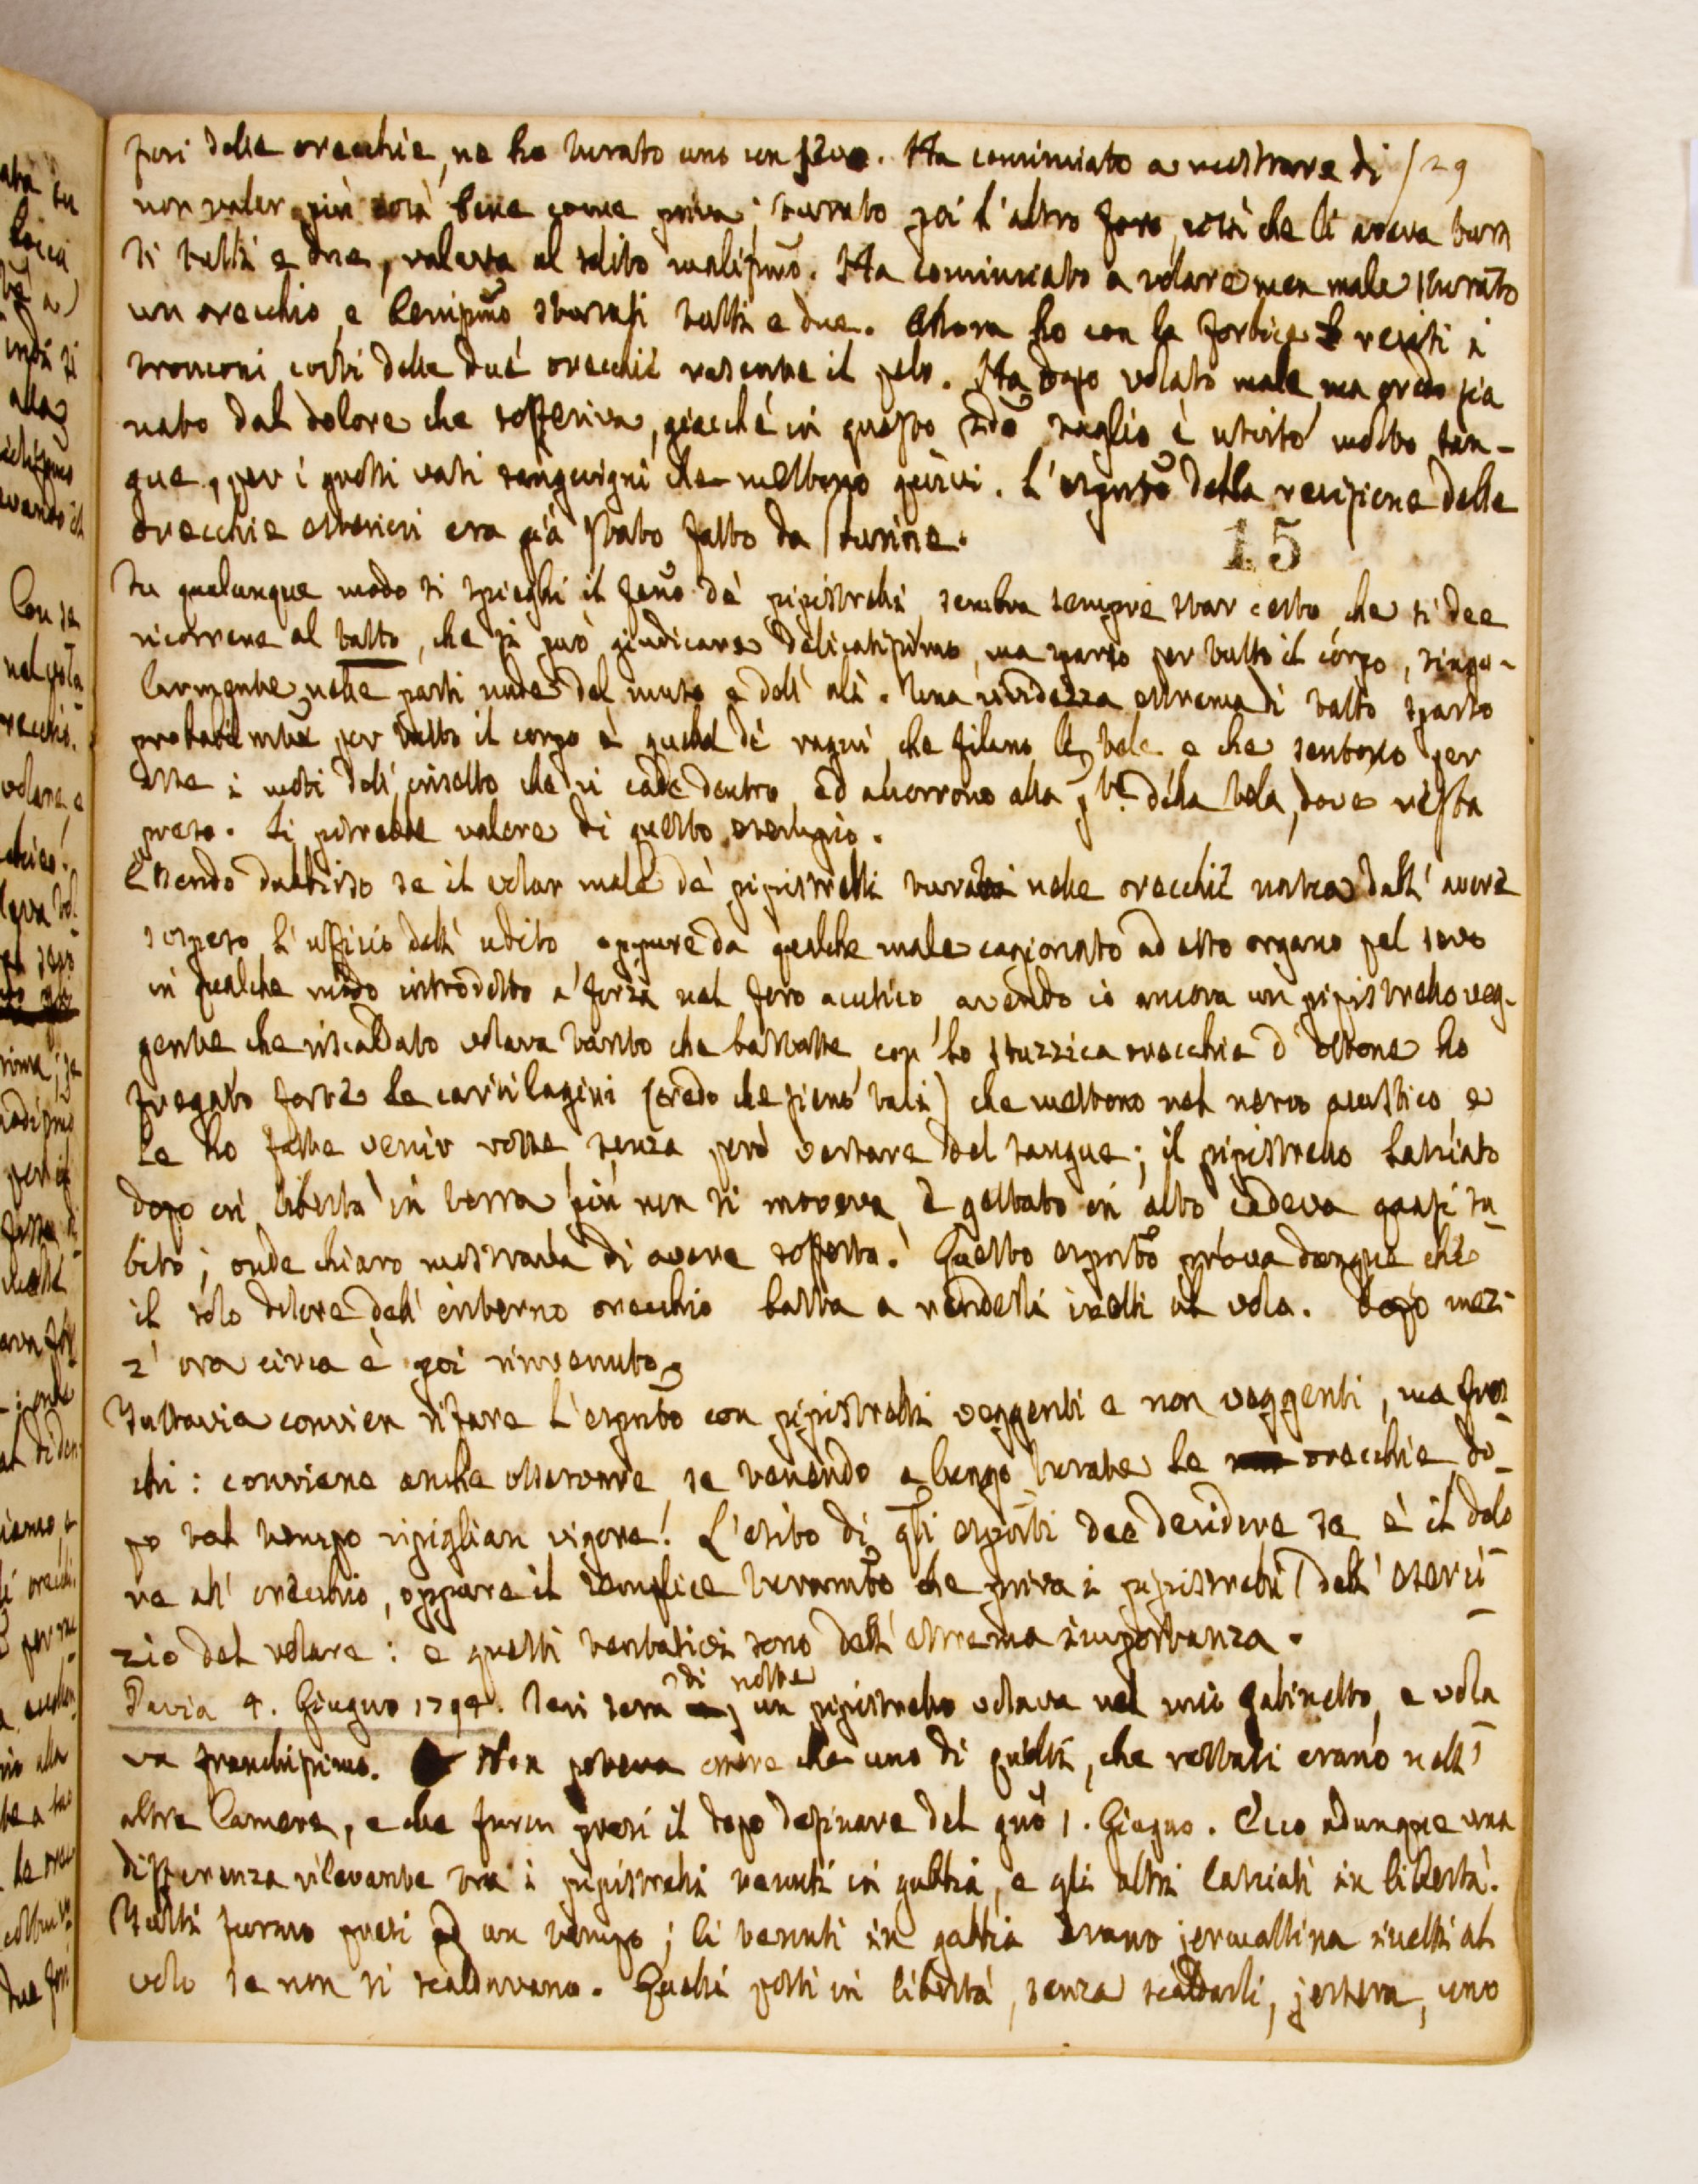 fori delle orecchie, ne ho turato uno con sevo. Ha cominciato a mostrare di /29
non valer più così bene come prima; turato poi l'altro foro, così che li aveva tura
ti tutti e due, volava al solito malissmo. Ha cominciato a volare men male sturato
un orecchio, e benissmo sturati tutti e due. Allora ho con la forbice recisi i
tronconi corti delle due orecchie rasente il pelo. Ha dopo volato male, ma credo
nato dal dolore che sofferiva, giacché in questo 2do taglio è uscito molto san-
gue, per i grossi vasi sanguigni che mettono quivi. L'esprto della recisione delle
orecchie esteriori era già stato fatto da Jurine.
15
In qualunque modo si spieghi il feno de' pipistrelli sembra sempre star certo che si dee
ricorrere al tatto, che si può giudicare delicatissimo, ma sparso per tutto il corpo, singo-
larmente nelle parti nude del muso e dell' ali. Una vividezza estrema di tatto sparso
probabilmte per tutto il corpo è quella de' ragni che filano le tele e che sentono per
esse i moti dell' insetto che vi cade dentro, ed accorrono alla pte della tela, dove resta
preso. Si potrebbe valere di questo esempio.
Essendo dubbioso se il volar male de' pipistrelli turati nelle orecchie nasca dall' avere
sospeso l' ufficio dell' udito, oppure da qualche male cagionato ad esso organo pel sevo
in qualche modo introdotto a forza nel foro acustico, avendo io ancora un pipistrello veg-
gente che riscaldato volava tanto che bastasse, con lo stuzzica orecchie d' ottone ho
fregato forte le cartilagini (credo che sieno tali) che mettono nel nervo acustico, e
le ho fatte venir rosse, senza però versare del sangue; il pipistrello lasciato
dopo in libertà in terra più non si moveva, e gettato in alto cadeva quasi su
bito; onde chiaro mostrava di avere sofferto. Questo esprto prova dunque che
il solo dolore dell' interno orecchio basta a renderli inetti al volo. Dopo mez-
z' ora circa è poi rinvenuto.
Tuttavia convien rifare l'esprto con pipistrelli veggenti e non veggenti, ma fres
chi: conviene anche osservare se tenendo a lungo turate le orecchie, do-
po tal tempo ripiglian vigore! L'esito di qsti esprti dee decidere se è il dolo
re all' orecchio, oppure il semplice turamto che priva i pipistrelli dell' eserci
zio del volare: e questi tentativi sono dell' estrema importanza.
Pavia 4. Giugno 1794. Ieri sera di notte un pipistrello volava nel mio gabinetto, e vola
va franchissimo. Non poteva essere che uno di quelli, che restati erano nell'
altre Camere, e che furon presi il dopo desinare del gno 1. Giugno. Ecco adunque una
differenza rilevante tra i pipistrelli tenuti in gabbia, e gli altri lasciati in libertà.
Tutti furono presi ad un tempo; li tenuti in gabbia erano jermattina inetti al
volo se non si scaldavano. Quelli posti in libertà, senza scaldarli, jersera, uno